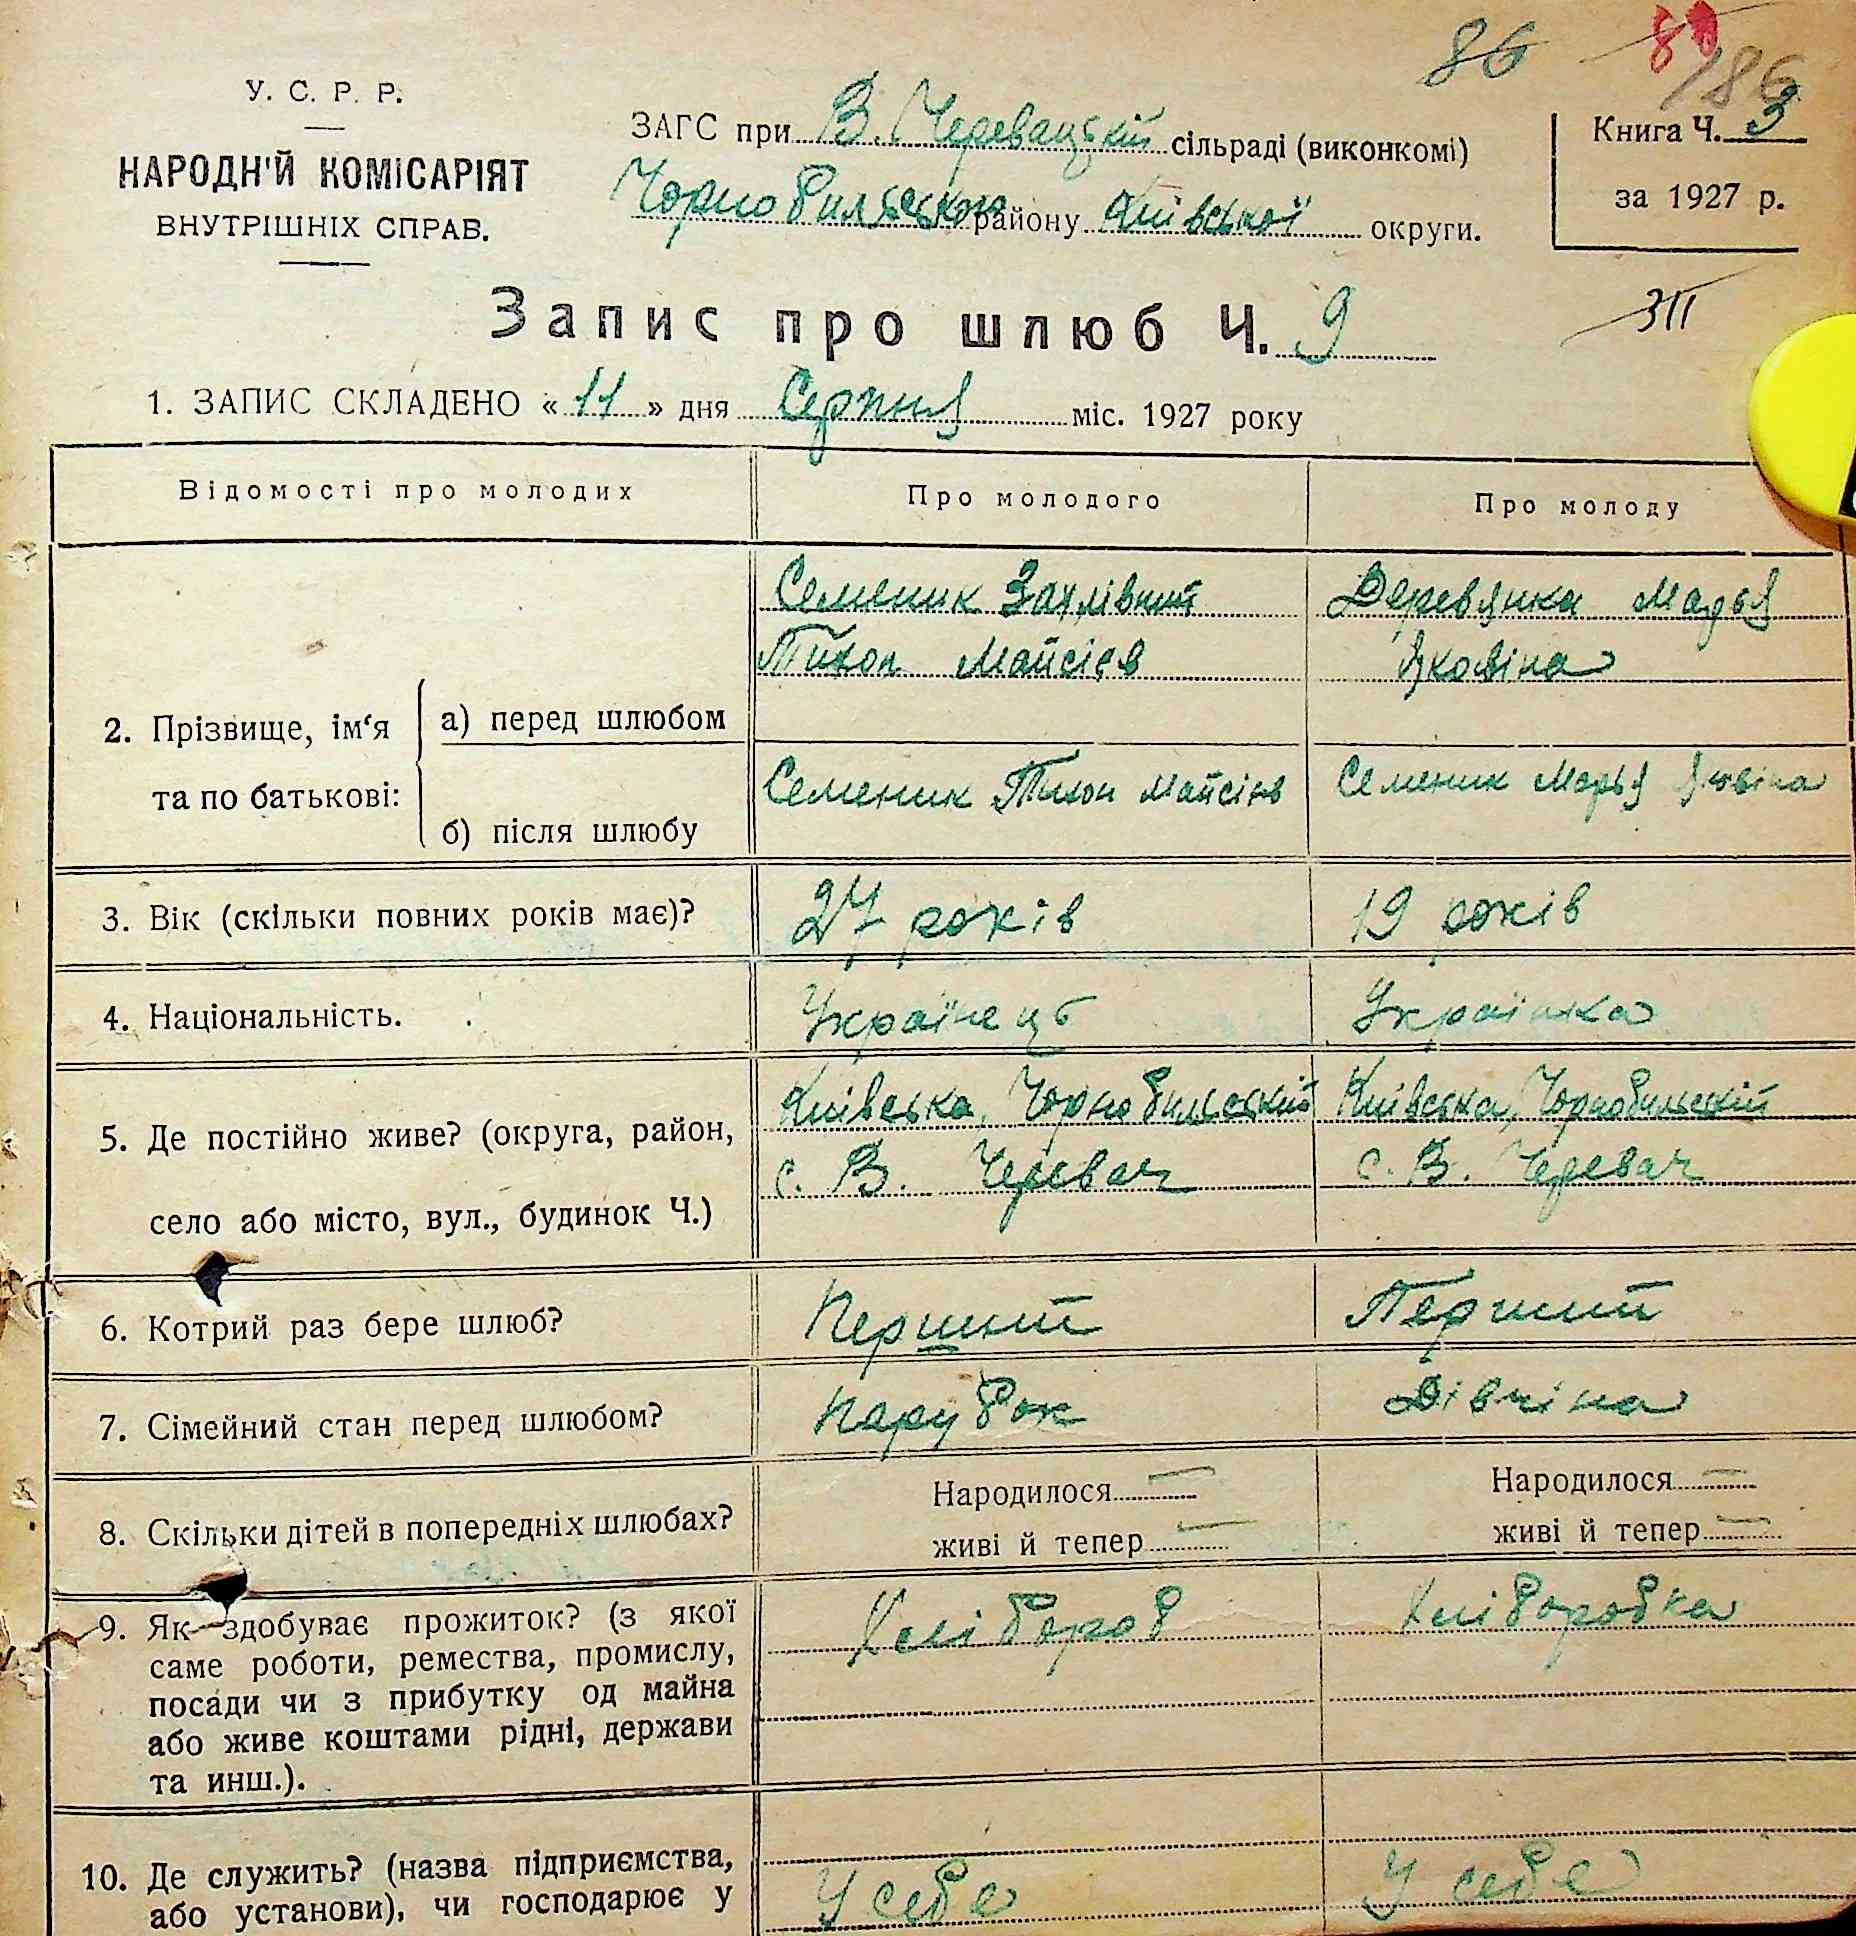 86 87 186
У. С. Р. Р.
НАРОДН'Й КОМІСАРІЯТ
ВНУТРІШНІХ СПРАВ.
ЗАГС при В. Черевацькій сільраді (виконкомі)
Чорнобильського району Київської округи.
Книга Ч. 3
за 1927 р.
Запис про шлюб Ч. 9
1. ЗАПИС СКЛАДЕНО « 11 » дня Серпня міс. 1927 року
Відомості про молодих Про молодого Про молоду
2. Прізвище, ім'я та по батькові:
а) перед шлюбом
Семеник
Тихон Майсієв
Деревянка Марья
Яковіна
б) після шлюбу
Семеник Тихон Майсієв
Семеник Марья
3. Вік (скільки повних років має)? 27 років 19 років
4. Національність. Українець Українка
5. Де постійно живе? (округа, район,
село або місто, вул., будинок Ч.)
Київська, Чорнобильський
с. В. Черевач
Київська, Чорнобильскій
с. В. Черевач
6. Котрий раз бере шлюб? Перший Перший
7. Сімейний стан перед шлюбом? Парубок Дівчіна
8. Скільки дітей в попередніх шлюбах?
Народилося —
живі й тепер —
Народилося —
живі й тепер —
9. Як здобуває прожиток? (з якої
саме роботи, ремества, промислу,
посади чи з прибутку од майна
або живе коштами рідні, держави
та инш.).
Хлібороб
Хліборобка
10. Де служить? (назва підприємства,
або установи), чи господарює у
У себе
У себе